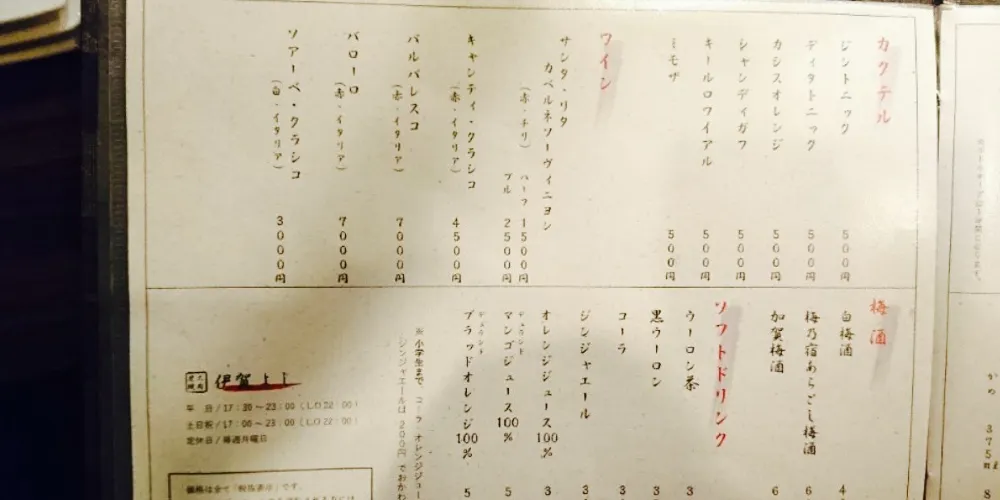 カクテル
ジントニック 500円
ディタトニック 500円
カシスオレンジ 500円
シャンディガフ 500円
キールロワイアル 500円
ミモザ 500円
ワイン
サンタ・リタ
カベルネソーヴィニヨン
(赤・チリ) ハーフ 1500円
フル 2500円
キャンティ・クラシコ
(赤・イタリア) 4500円
バルバレスコ
(赤・イタリア) 7000円
バローロ
(赤・イタリア) 7000円
ソアーベ・クラシコ
(白・イタリア) 3000円
梅酒
白梅酒 4
梅乃宿あらごし梅酒 6
加賀梅酒 6
ソフトドリンク
ウーロン茶 3
黒ウーロン 3
コーラ 3
ジンジャエール 3
オレンジジュース100% 3
マンゴジュース100% 5
ブラッドオレンジ100% 5
※小学生まで、コーラ・オレンジジュー
ジンジャエールは200円でおかわ
伊賀
平 日/17:30~23:00(L.O 22:00)
土日祝/17:00~23:00(L.O 22:00)
定休日/毎週月曜日
価格は全て「税抜表示」です。